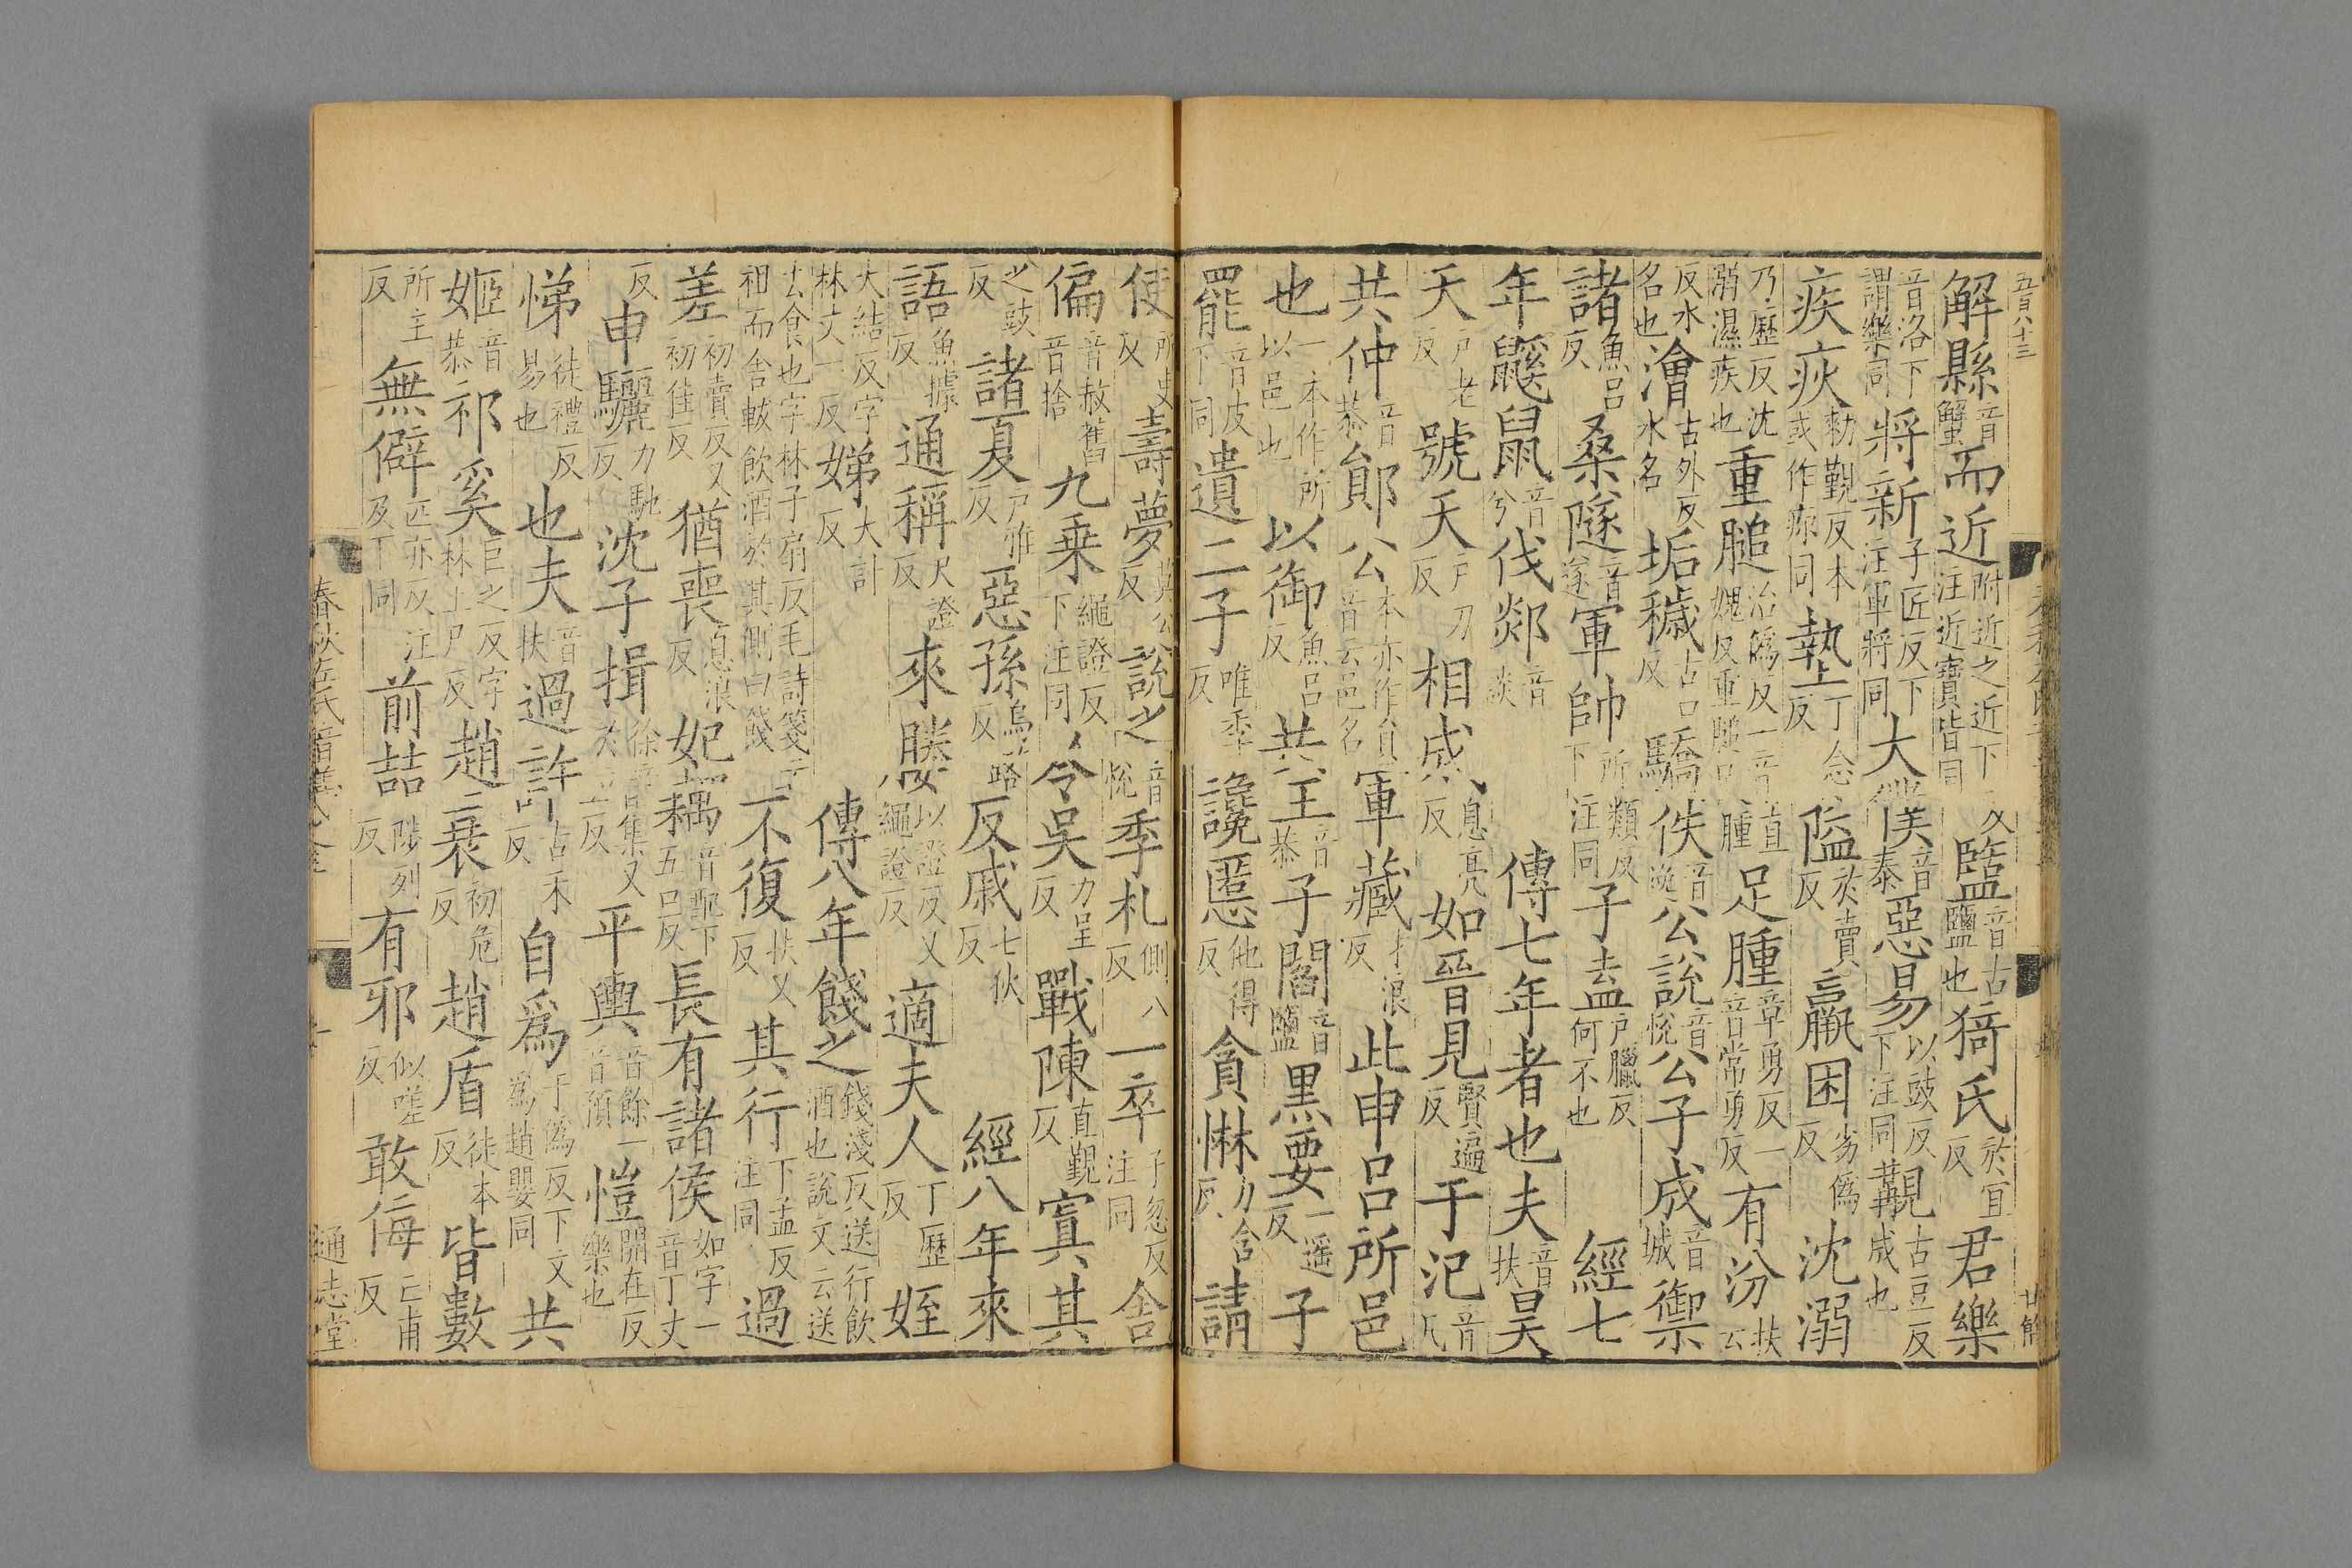 五百八十三
解縣音蟹而近附近之近下注近寶皆同又盬音古鹽也猗氏於宜反君樂
音洛下謂樂同將新子匠反下注軍將同大僕音泰惡易以豉反下注同覯古豆反成也
疾疢勑覲反本或作疹同墊丁念反隘於賣反羸困劣僞反沈溺
乃歷反沈溺濕疾也重膇治僞反一音直媿反重膇腫足腫章勇反一音常勇反有汾扶云
反水名也澮古外反水名垢穢古口反驕佚音逸公說音悅公子成音城禦
諸魚呂反桑隧音遂軍帥所類反下注同子盍戶臘反何不也經七
年鼷鼠音兮伐郯音談傳七年者也夫音扶昊
天戶老反號天戶刀反相戚息亮反如晉見賢遍反于汜音凡
共仲音恭鄖公本亦作員音云邑名軍藏才浪反此申呂所邑
也一本作所以邑也以御魚呂反共王音恭子閻音鹽黑要一遥反子
罷音皮下同遺二子唯季反讒慝他得反貪惏力含反請
使所吏反壽夢莫公反說之音悅季札側八反一卒子忽反注同舍
偏音赦舊音捨九乗繩證反下注同令吳力呈反戰陳直覲反寘其
之豉反諸夏戶雅反惡孫烏路反反戚七狄反經八年來
語魚據反通稱尺證反來媵以證反又繩證反適夫人丁歷反姪
大結反字林丈一反娣大計反傳八年餞之錢淺反送行飲酒也說文云送
去食也字林子扇反毛詩箋云祖而舍軷飲酒於其側曰餞不復扶又反其行下孟反注同過
差初賣反又初佳反猶喪息浪反妃耦音配下五口反長有諸侯如字一音丁丈
反申驪力馳反沈子揖徐音集又於立反平輿音餘一音預愷開在反樂也
悌徒禮反易也也夫音扶過許古禾反自爲于僞反下文爲趙嬰同共
姬音恭祁奚巨之反字林上尸反趙衰初危反趙盾徒本反皆數
所主反無僻匹亦反注及下同前喆陟列反有邪似嗟反敢侮亡甫反
春秋左氏音義
通志堂